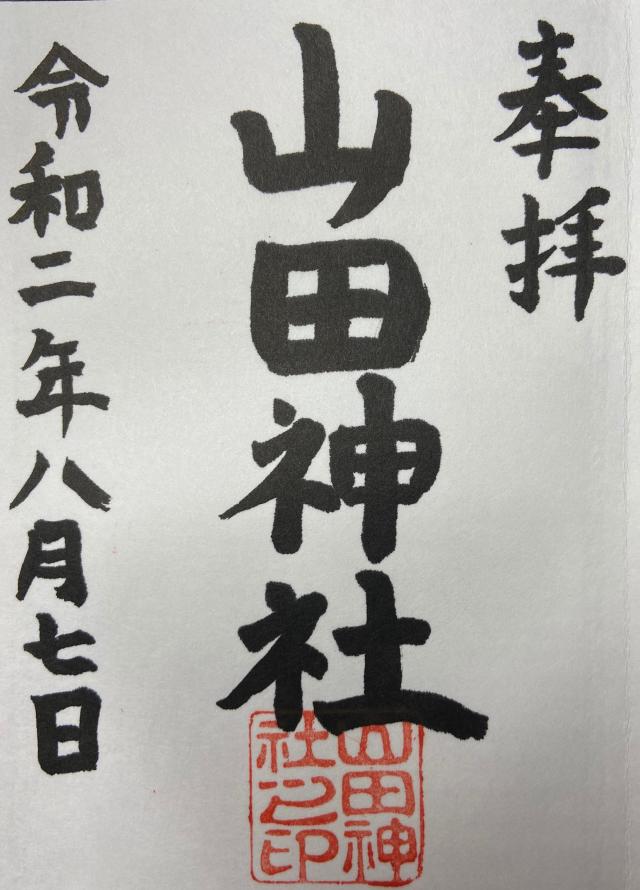 奉拝
山田神社
山田神
社之印
令和二年八月七日